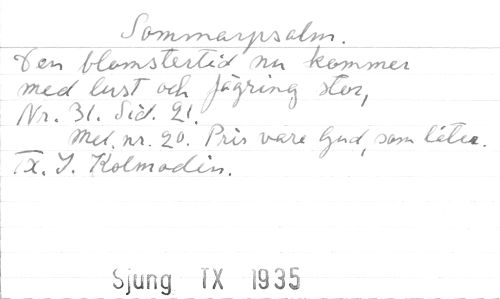 Sommarpsalm.
Den blomstertid nu kommer
med lust och fägring stor,
Nr. 31. Sid. 21.
Mel. nr. 20. Pris vare Gud, som låter.
Tx. I. Kolmodin.
Sjung TX 1935